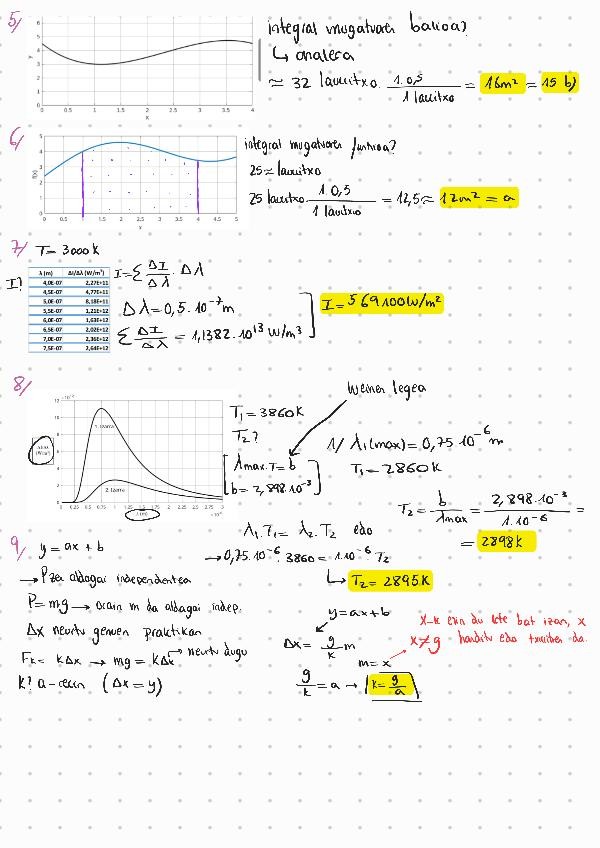 5/
integral mugatuaren balioa?
↳ analera
≈ 32 lauuitxo. 1.0,5 / 1 lauitxo = 16m² = 15 b)
y
5
4
3
2
1
0
0 0.5 1 1.5 2 2.5 3 3.5 4
x
6/
integral mugatuaren funtzioa?
25≈ lauuitxo
25 lauuitxo. 1 0,5 / 1 lauuitxo = 12,5≈ 12m² = a
f(x)
5
4
3
2
1
0
0 0.5 1 1.5 2 2.5 3 3.5 4 4.5 5
x
7/ T= 3000k
I?
λ (m) ΔI/Δλ (W/m³)
4,0E-07 2,27E+11
4,5E-07 4,77E+11
5,0E-07 8,18E+11
5,5E-07 1,21E+12
6,0E-07 1,63E+12
6,5E-07 2,02E+12
7,0E-07 2,36E+12
7,5E-07 2,64E+12
I=Σ ΔI/Δλ · Δλ
Δλ=0,5.10⁻⁷m
Σ ΔI/Δλ = 1,1382.10¹³ W/m³
I= 569100W/m²
8/
Weiner legea
12
10
8
6
4
2
0
1. izarra
2. izarra
0 0.25 0.5 0.75 1 1.25 1.5 1.75 2 2.25 2.5 2.75 3
λ (m)
T₁=3860K
T₂?
λmax.T=b
b= 2,898.10⁻³
1/ λ₁(max)=0,75 10⁻⁶ m
T₁=2860K
T₂= b/λmax = 2,898.10⁻³ / 1.10⁻⁶ =
= 2898k
λ₁.T₁= λ₂.T₂ edo
→0,75.10⁻⁶. 3860=1.10⁻⁶ T₂
↳ T₂= 2895K
9/ y=ax+b
→ P zen aldagai independentea
P=mg → orain m da aldagai indep.
Δx neurtu genuen praktikan
Fₖ= kΔx → mg= kΔx → neurtu dugu
k? a-rekin (Δx=y)
y=ax+b
Δx= g/k m
m=x
g/k =a → k= g/a
x-k ezin du kte bat izan, x
x≠g handitu edo txikitu da.